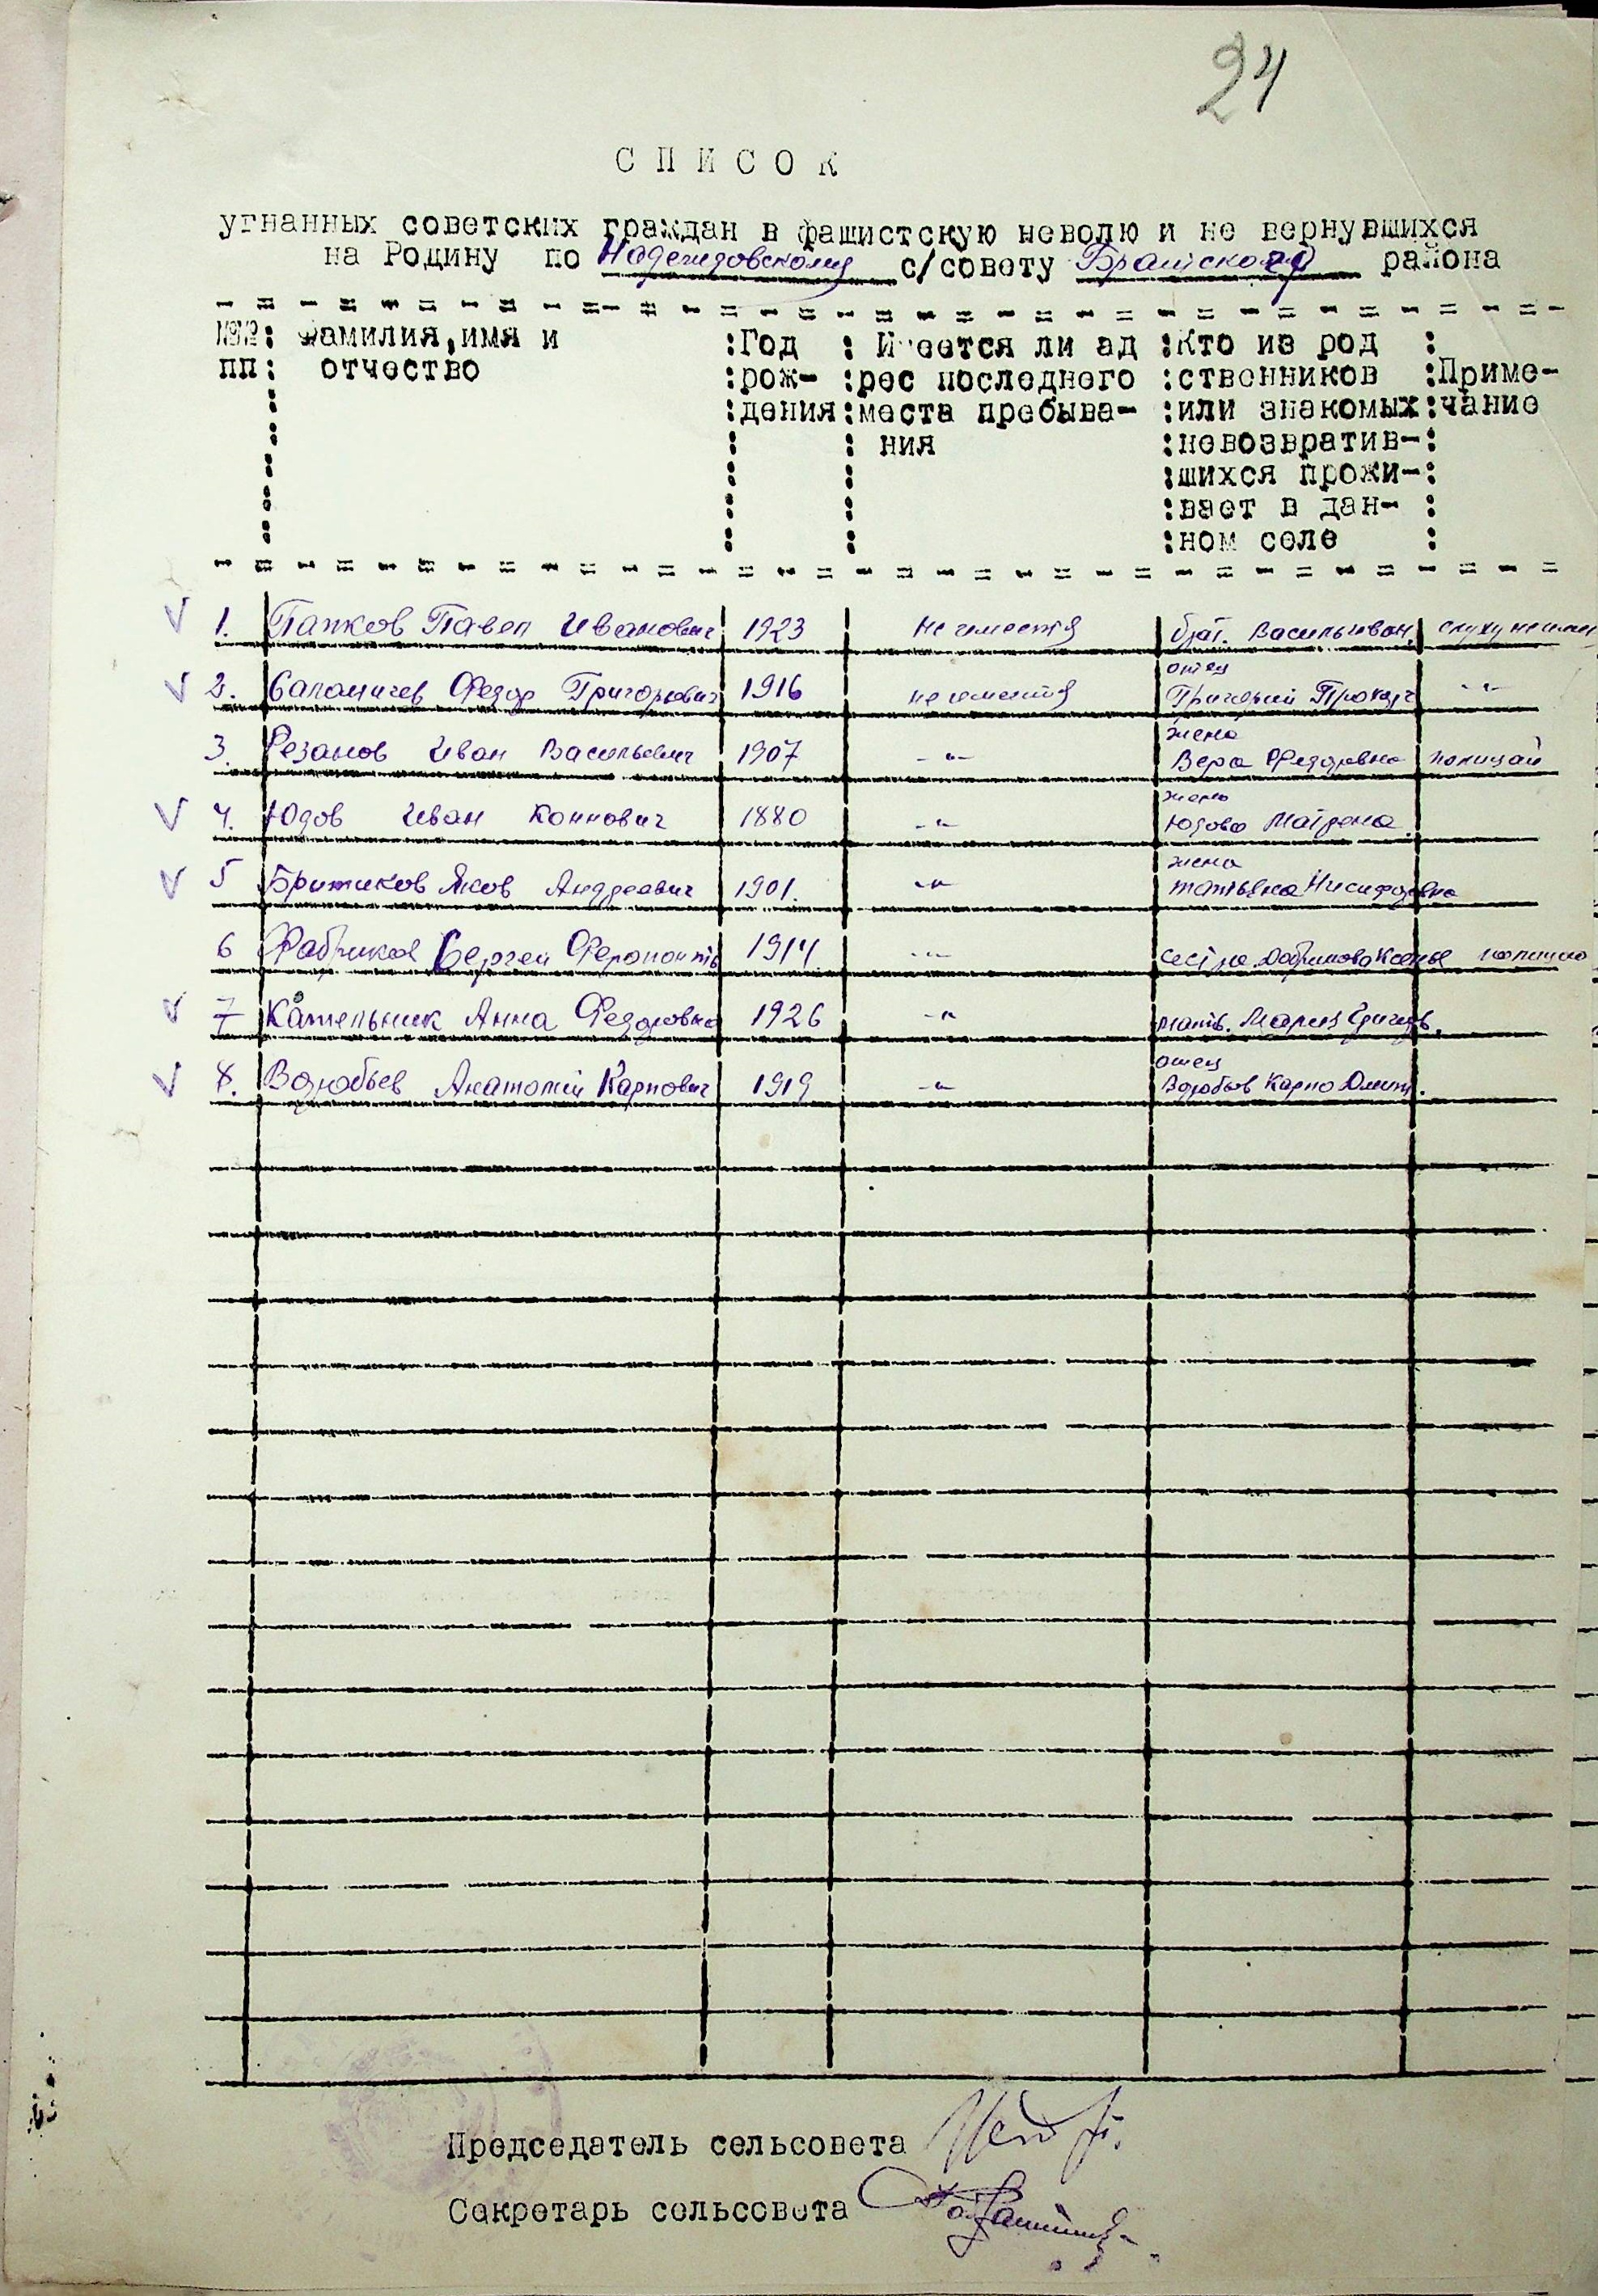 24
СПИСОК
угнанных советских граждан в фашистскую неволю и не вернувшихся
на Родину по Надеждовскому с/совету Братского района
№№ пп : Фамилия, имя и отчество : Год рож-дения : Имеется ли ад рес последнего места пребыва-ния : Кто из род ственников или знакомых невозвратив-шихся прожи-вает в дан-ном селе : Приме-чание
1. Папков Павел Иванович 1923 не имеется брат. Василь Иван.
2. Григорович 1916 не имеется отец Григорий -"-
3. Резанов Иван Васильевич 1907 -"- жена Вера Федоровна полицай
4. Юдов Иван Кононович 1880 -"- жена Юдова Матрена
5 Бритиков Яков Андреевич 1901. -"- жена Татьяна Никифоровна
6 Фабриков Сергей 1914 -"- сестра
7 Кательник Анна Федоровна 1926 -"- мать. Мария Григор.
8. Воробьев Анатолий Карпович 1919 -"- отец Воробьев Карпо Дмит.
Председатель сельсовета
Секретарь сельсовета